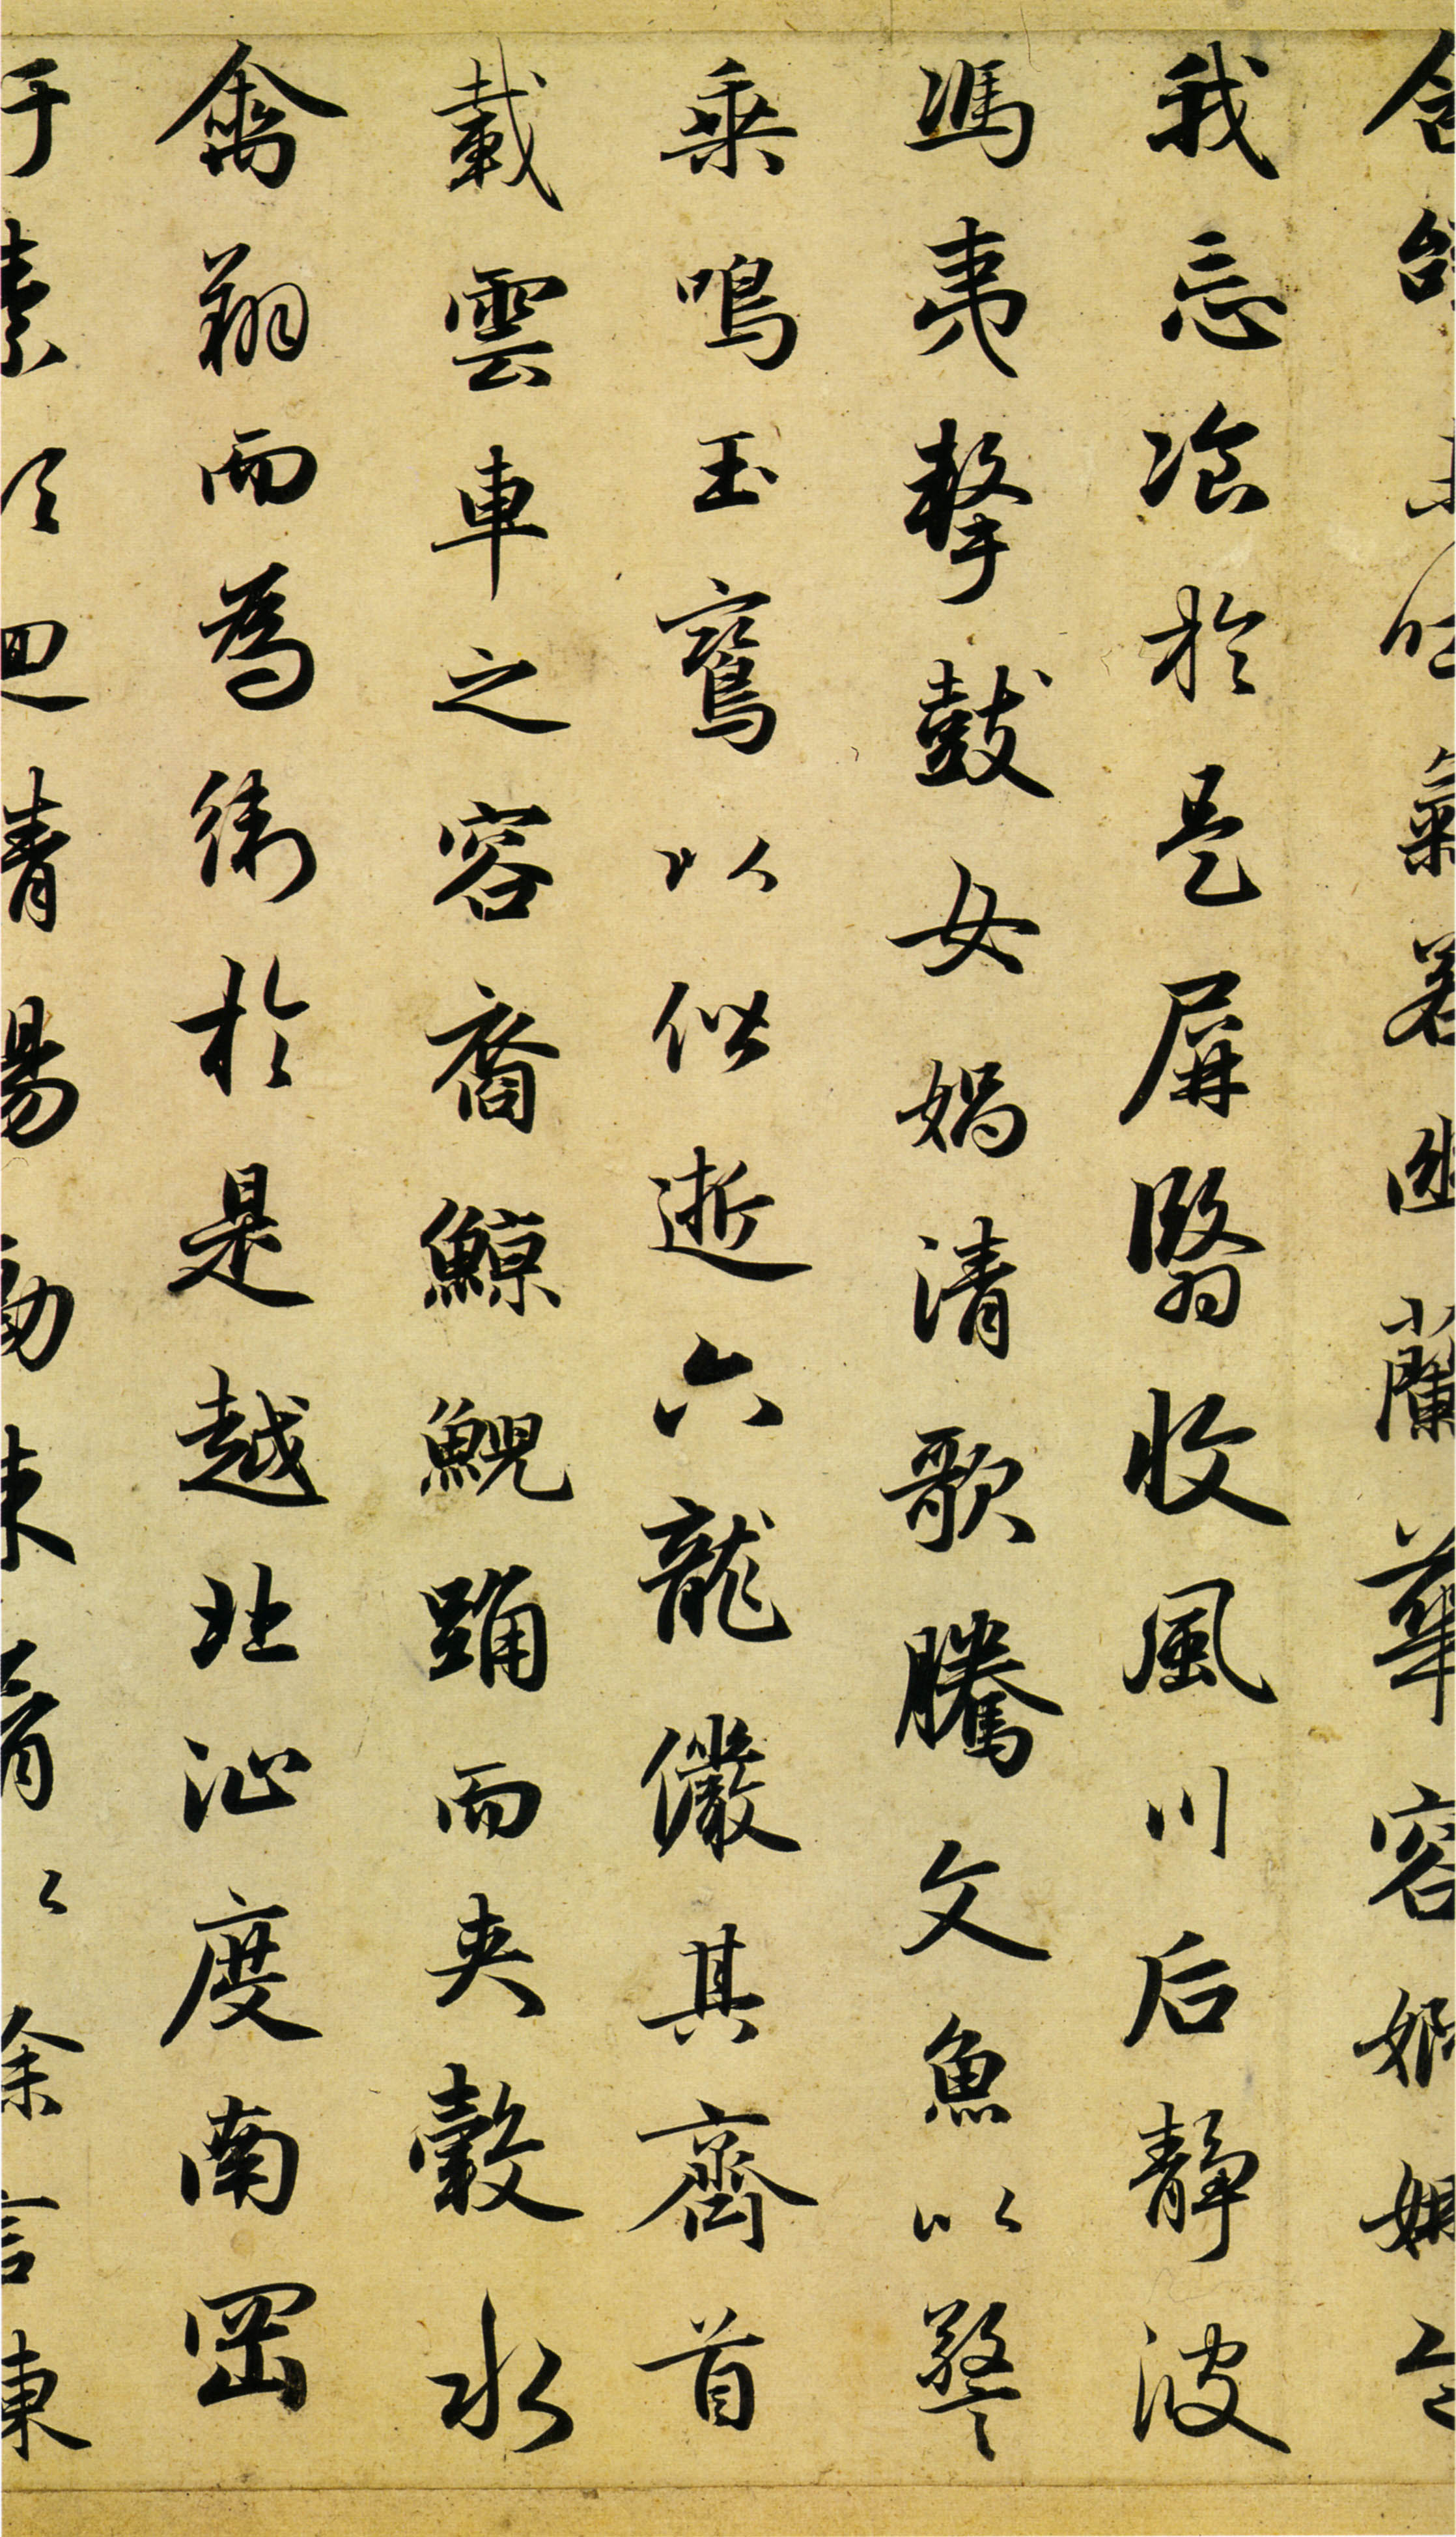 含辭未吐氣若幽蘭華容婀娜令
我忘飡於是屏翳收風川后靜波
馮夷擊鼓女媧清歌騰文魚以警
乗鳴玉鸞以偕逝六龍儼其齊首
載雲車之容裔鯨鯢踴而夾轂水
禽翔而為衛於是越北沚度南岡
紆素領迴清揚動朱脣以徐言陳